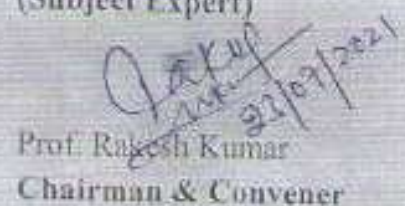 (Subject Expert)
23/09/2021
Prof. Rakesh Kumar
Chairman & Convener